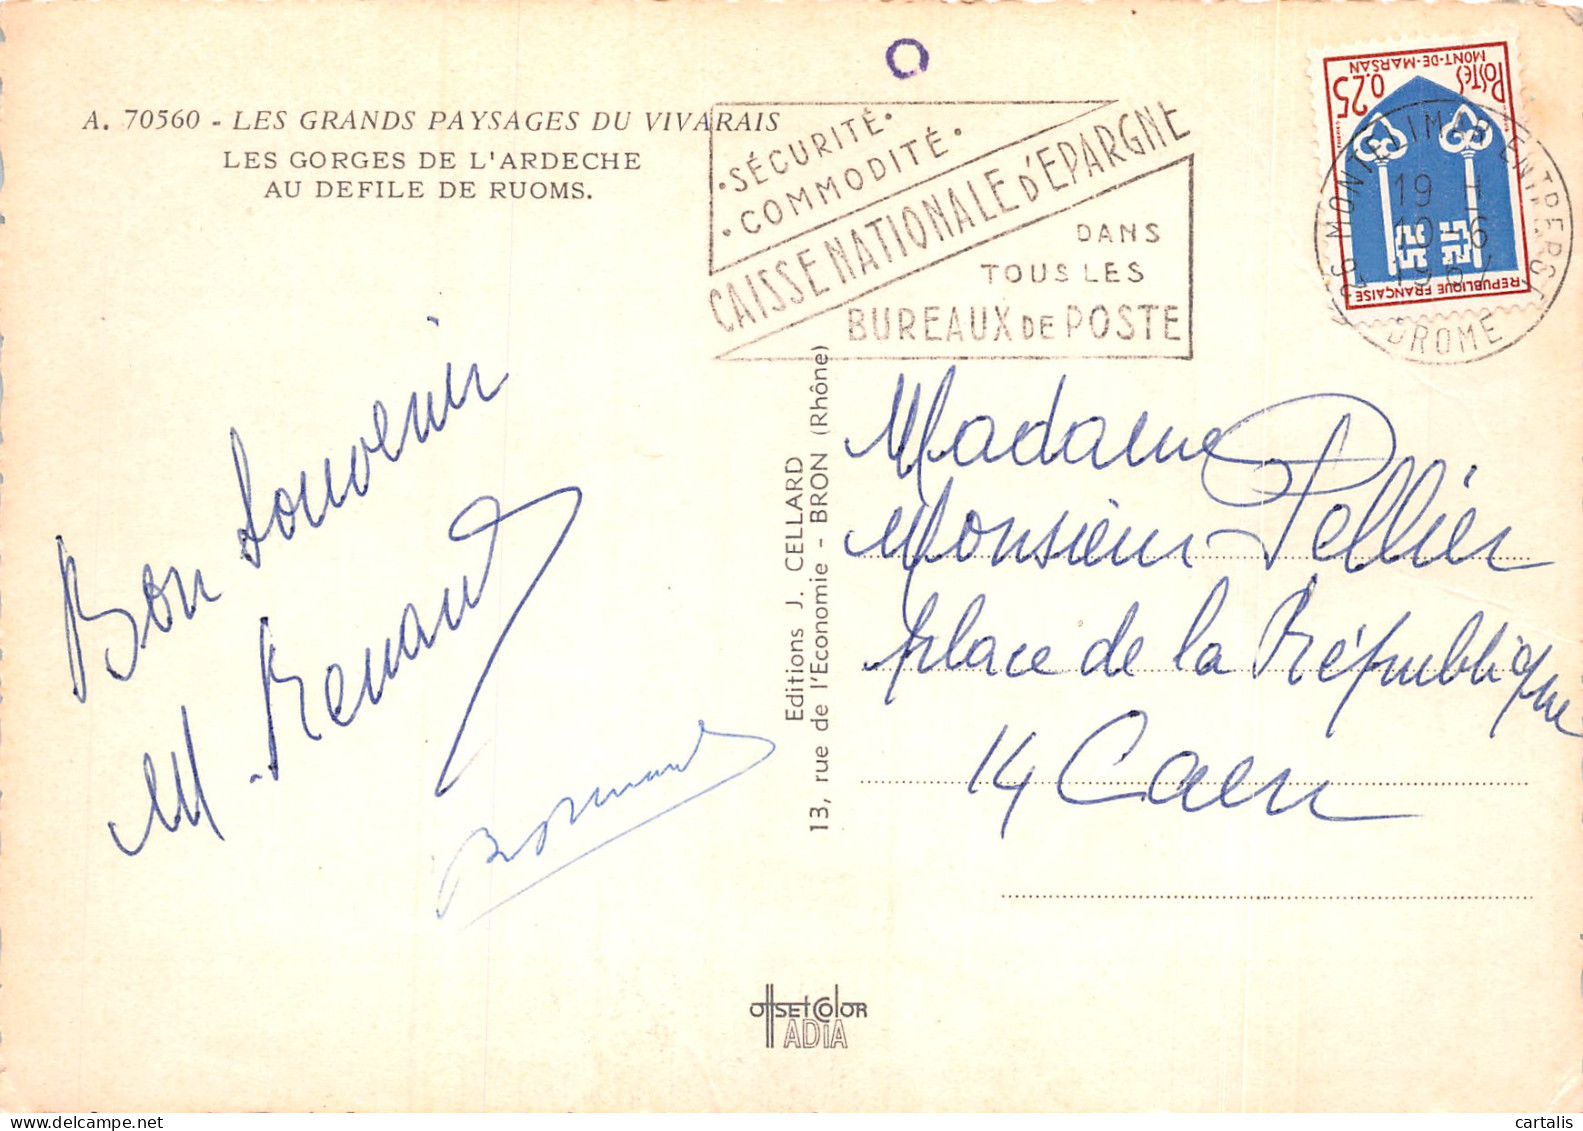 A. 70560 - LES GRANDS PAYSAGES DU VIVARAIS
LES GORGES DE L'ARDECHE
AU DEFILE DE RUOMS.
• SÉCURITÉ •
• COMMODITÉ •
CAISSE NATIONALE D'EPARGNE
DANS
TOUS LES
BUREAUX DE POSTE
POSTES
MONT-DE-MARSAN
0.25
REPUBLIQUE FRANÇAISE
26 MONTELIMAR ENTREPOT
19 H
10-6
1967
DROME
Bon souvenir
M. Renaud
Editions J. CELLARD
13, rue de l'Economie - BRON (Rhône)
Madame
Monsieur Pellier
place de la République
14 Caen
OFFSET COLOR
ADIA
cartalis
delcampe.net